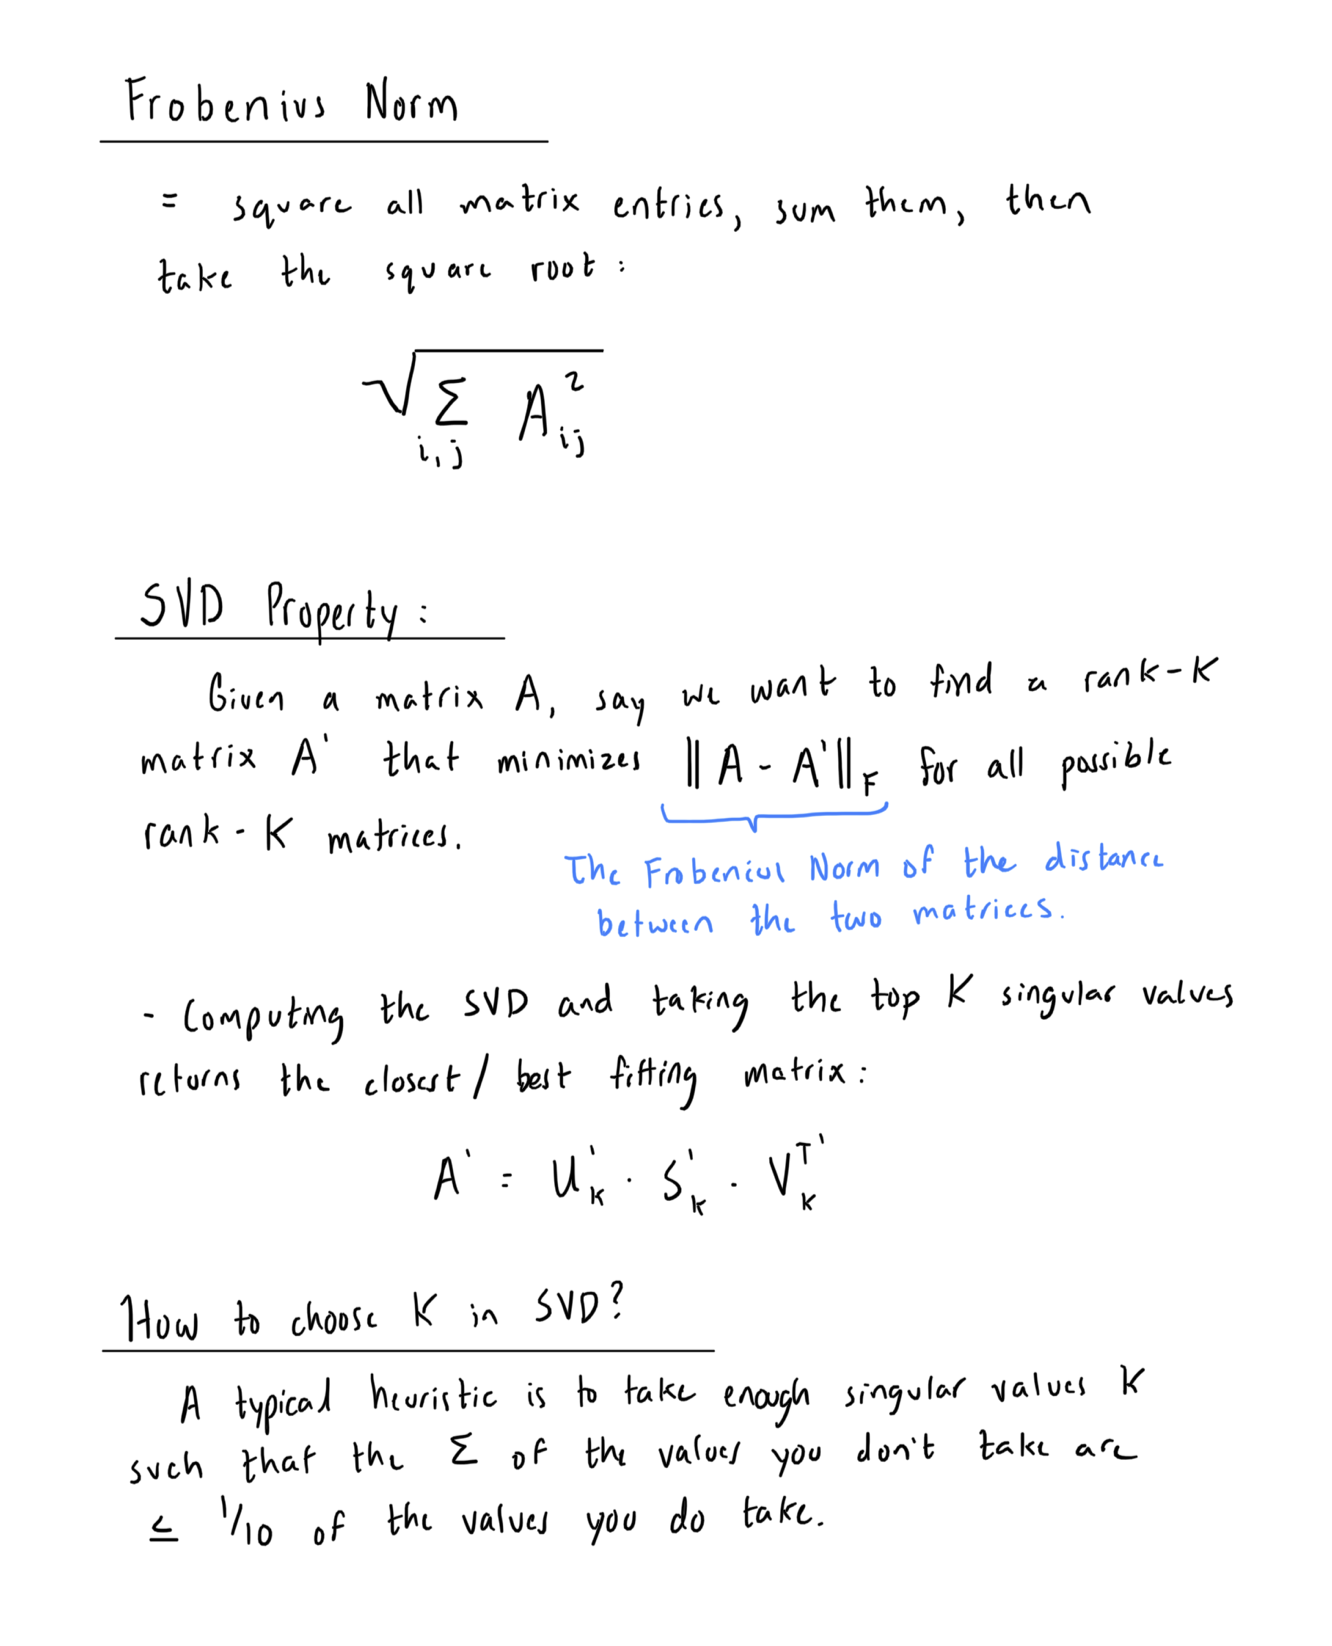 Frobenius Norm
= square all matrix entries, sum them, then
take the square root:
√ Σ_{i,j} A_{ij}^2
SVD Property:
Given a matrix A, say we want to find a rank-K
matrix A' that minimizes ‖A - A'‖_F for all possible
rank-K matrices.
The Frobenius Norm of the distance
between the two matrices.
- Computing the SVD and taking the top K singular values
returns the closest / best fitting matrix:
A' = U'_k · S'_k · V_k^T'
How to choose K in SVD?
A typical heuristic is to take enough singular values K
such that the Σ of the values you don't take are
≤ 1/10 of the values you do take.